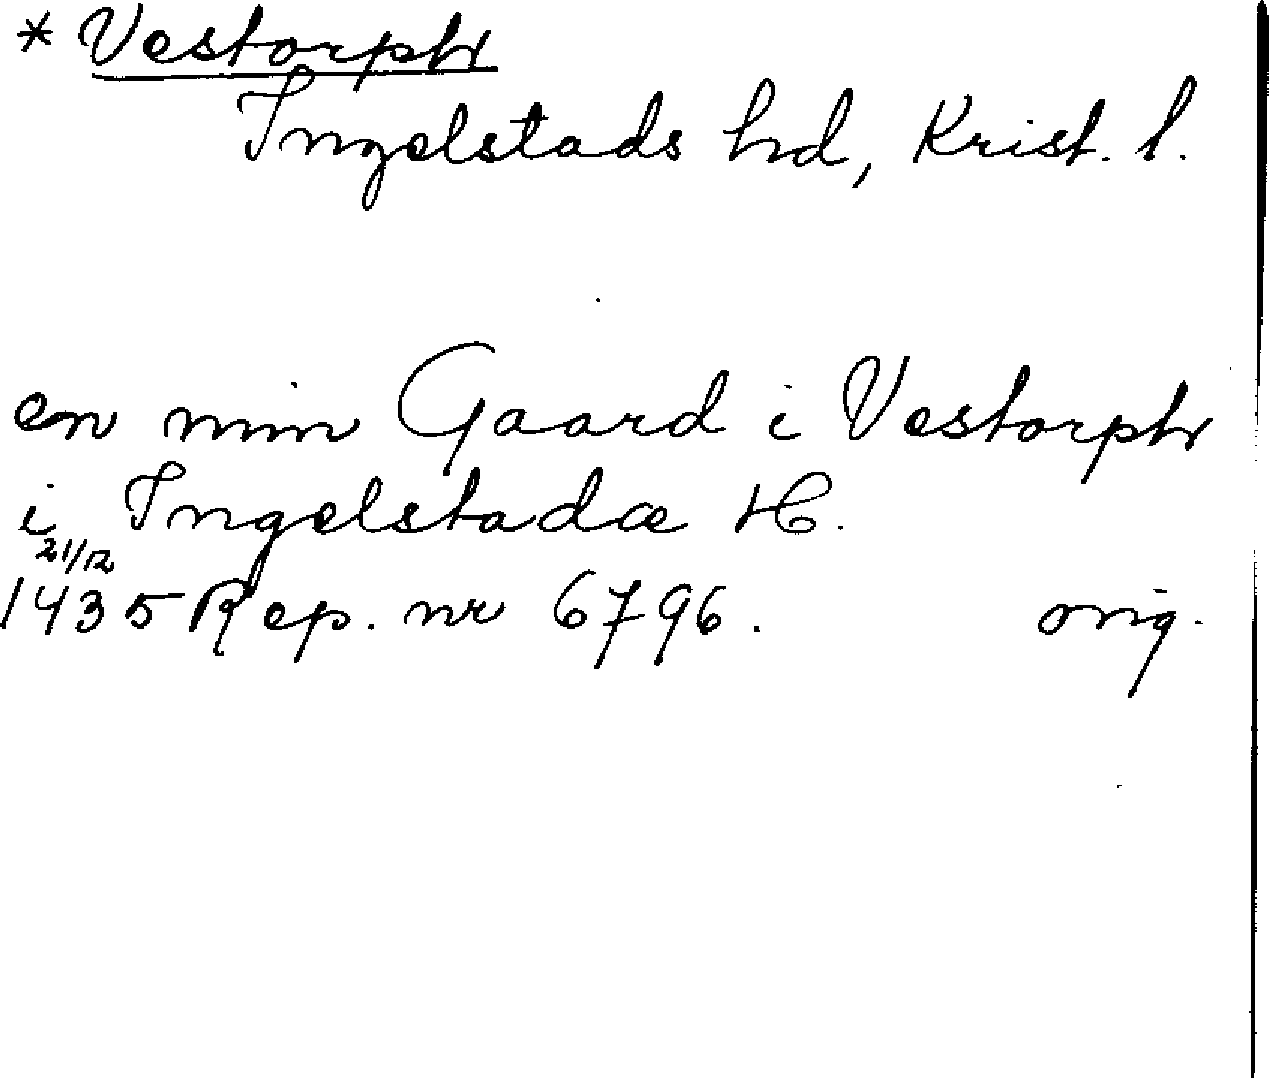 * Vestorph
Ingelstads hd, Krist. l.
en min Gaard i Vestorph
i Ingelstadæ H.
21/12
1435 Rep. nr 6796. orig.